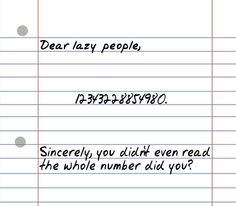 Dear lazy people,
12343228854980.
Sincerely, you didn't even read
the whole number did you?